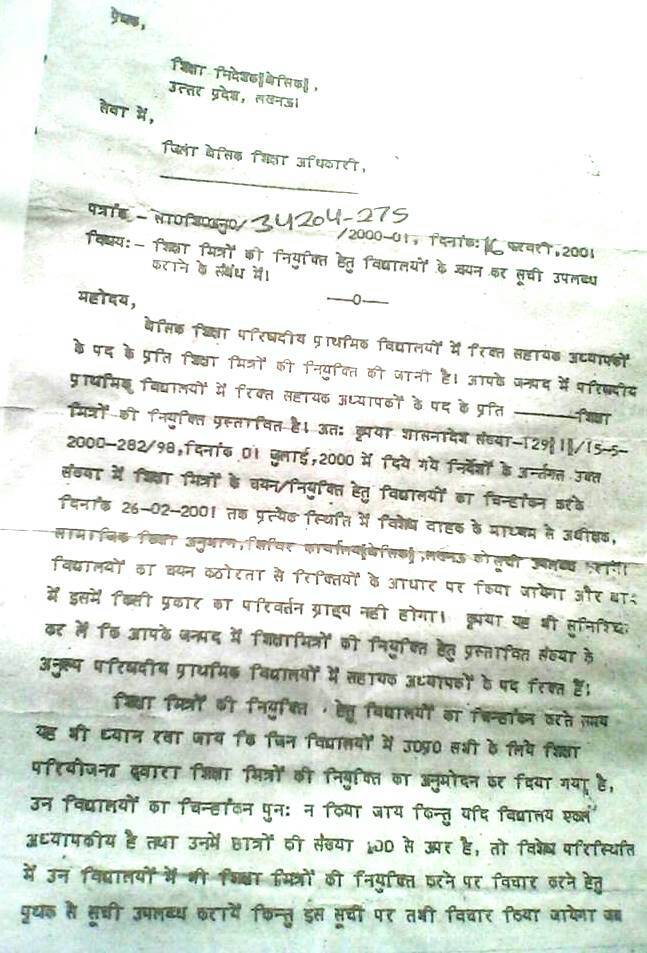 प्रेषक,
शिक्षा निदेशक॥बेसिक॥,
उत्तर प्रदेश, लखनऊ।
सेवा में,
जिला बेसिक शिक्षा अधिकारी,
पत्रांक - सा0शि0अनु0/34204-275
/2000-01, दिनांक: 16 फरवरी,2001
विषय:- शिक्षा मित्रों की नियुक्ति हेतु विद्यालयों के चयन कर सूची उपलब्ध
कराने के संबंध में।
—0—
महोदय,
बेसिक शिक्षा परिषदीय प्राथमिक विद्यालयों में रिक्त सहायक अध्यापकों
के पद के प्रति शिक्षा मित्रों की नियुक्ति की जानी है। आपके जनपद में परिषदीय
प्राथमिक विद्यालयों में रिक्त सहायक अध्यापकों के पद के प्रति ———शिक्षा
मित्रों की नियुक्ति प्रस्तावित है। अतः कृपया शासनादेश संख्या-129॥1॥/15-5-
2000-282/98,दिनांक 01 जुलाई,2000 में दिये गये निर्देशों के अन्तर्गत उक्त
संख्या में शिक्षा मित्रों के चयन/नियुक्ति हेतु विद्यालयों का चिन्हांकन करके
दिनांक 26-02-2001 तक प्रत्येक स्थिति में विशेष वाहक के माध्यम से अधीक्षक,
सामाजिक शिक्षा अनुभाग,शिविर कार्यालय॥बेसिक॥,लखनऊ को सूची उपलब्ध
विद्यालयों का चयन कठोरता से रिक्तियों के आधार पर किया जायेगा और बाद
में इसमें किसी प्रकार का परिवर्तन ग्राह्य नहीं होगा। कृपया यह भी सुनिश्चि
कर लें कि आपके जनपद में शिक्षामित्रों की नियुक्ति हेतु प्रस्तावित संख्या के
अनुरूप परिषदीय प्राथमिक विद्यालयों में सहायक अध्यापकों के पद रिक्त हैं।
शिक्षा मित्रों की नियुक्ति हेतु विद्यालयों का चिन्हांकन करते समय
यह भी ध्यान रखा जाय कि जिन विद्यालयों में उ0प्र0 सभी के लिये शिक्षा
परियोजना द्वारा शिक्षा मित्रों की नियुक्ति का अनुमोदन कर दिया गया है,
उन विद्यालयों का चिन्हांकन पुनः न किया जाय किन्तु यदि विद्यालय एकल
अध्यापकीय है तथा उनमें छात्रों की संख्या 100 से उपर है, तो विशेष परिस्थिति
में उन विद्यालयों में भी शिक्षा मित्रों की नियुक्ति करने पर विचार करने हेतु
पृथक से सूची उपलब्ध करायें किन्तु इस सूची पर तभी विचार किया जायेगा जब